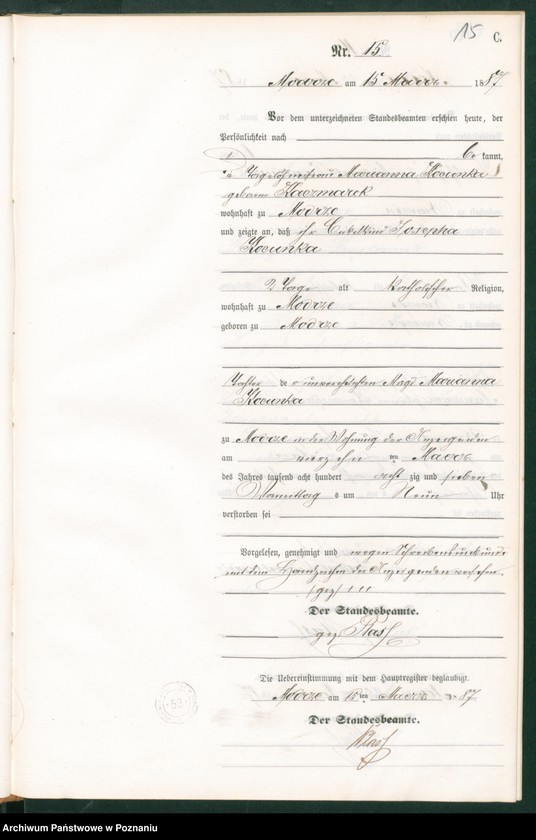 15 C.
Nr. 15.
Modrze am 15 Maerz 1887
Vor dem unterzeichneten Standesbeamten erschien heute, der
Persönlichkeit nach
be kannt,
die Tagelöhnerfrau Marianna Kocunka
geborne Kaczmarek
wohnhaft zu Modrze
und zeigte an, daß ihr Enkelkind Josepha
Kocunka
2 Tage alt Katholischer Religion,
wohnhaft zu Modrze
geboren zu Modrze
Tochter der unverehelichten Magd Marianna
Kocunka
zu Modrze in der Wohnung der Anzeigenden
am vierzehn ten Maerz
des Jahres tausend acht hundert acht zig und sieben
Vormittags um Neun Uhr
verstorben sei
Vorgelesen, genehmigt und wegen Schreibensunkunde
mit dem Handzeichen der Anzeigenden versehen.
(gez) † † †
Der Standesbeamte.
gez
Die Uebereinstimmung mit dem Hauptregister beglaubigt.
Modrze am 15ten Maerz 1887
Der Standesbeamte.
53
Archiwum Państwowe w Poznaniu